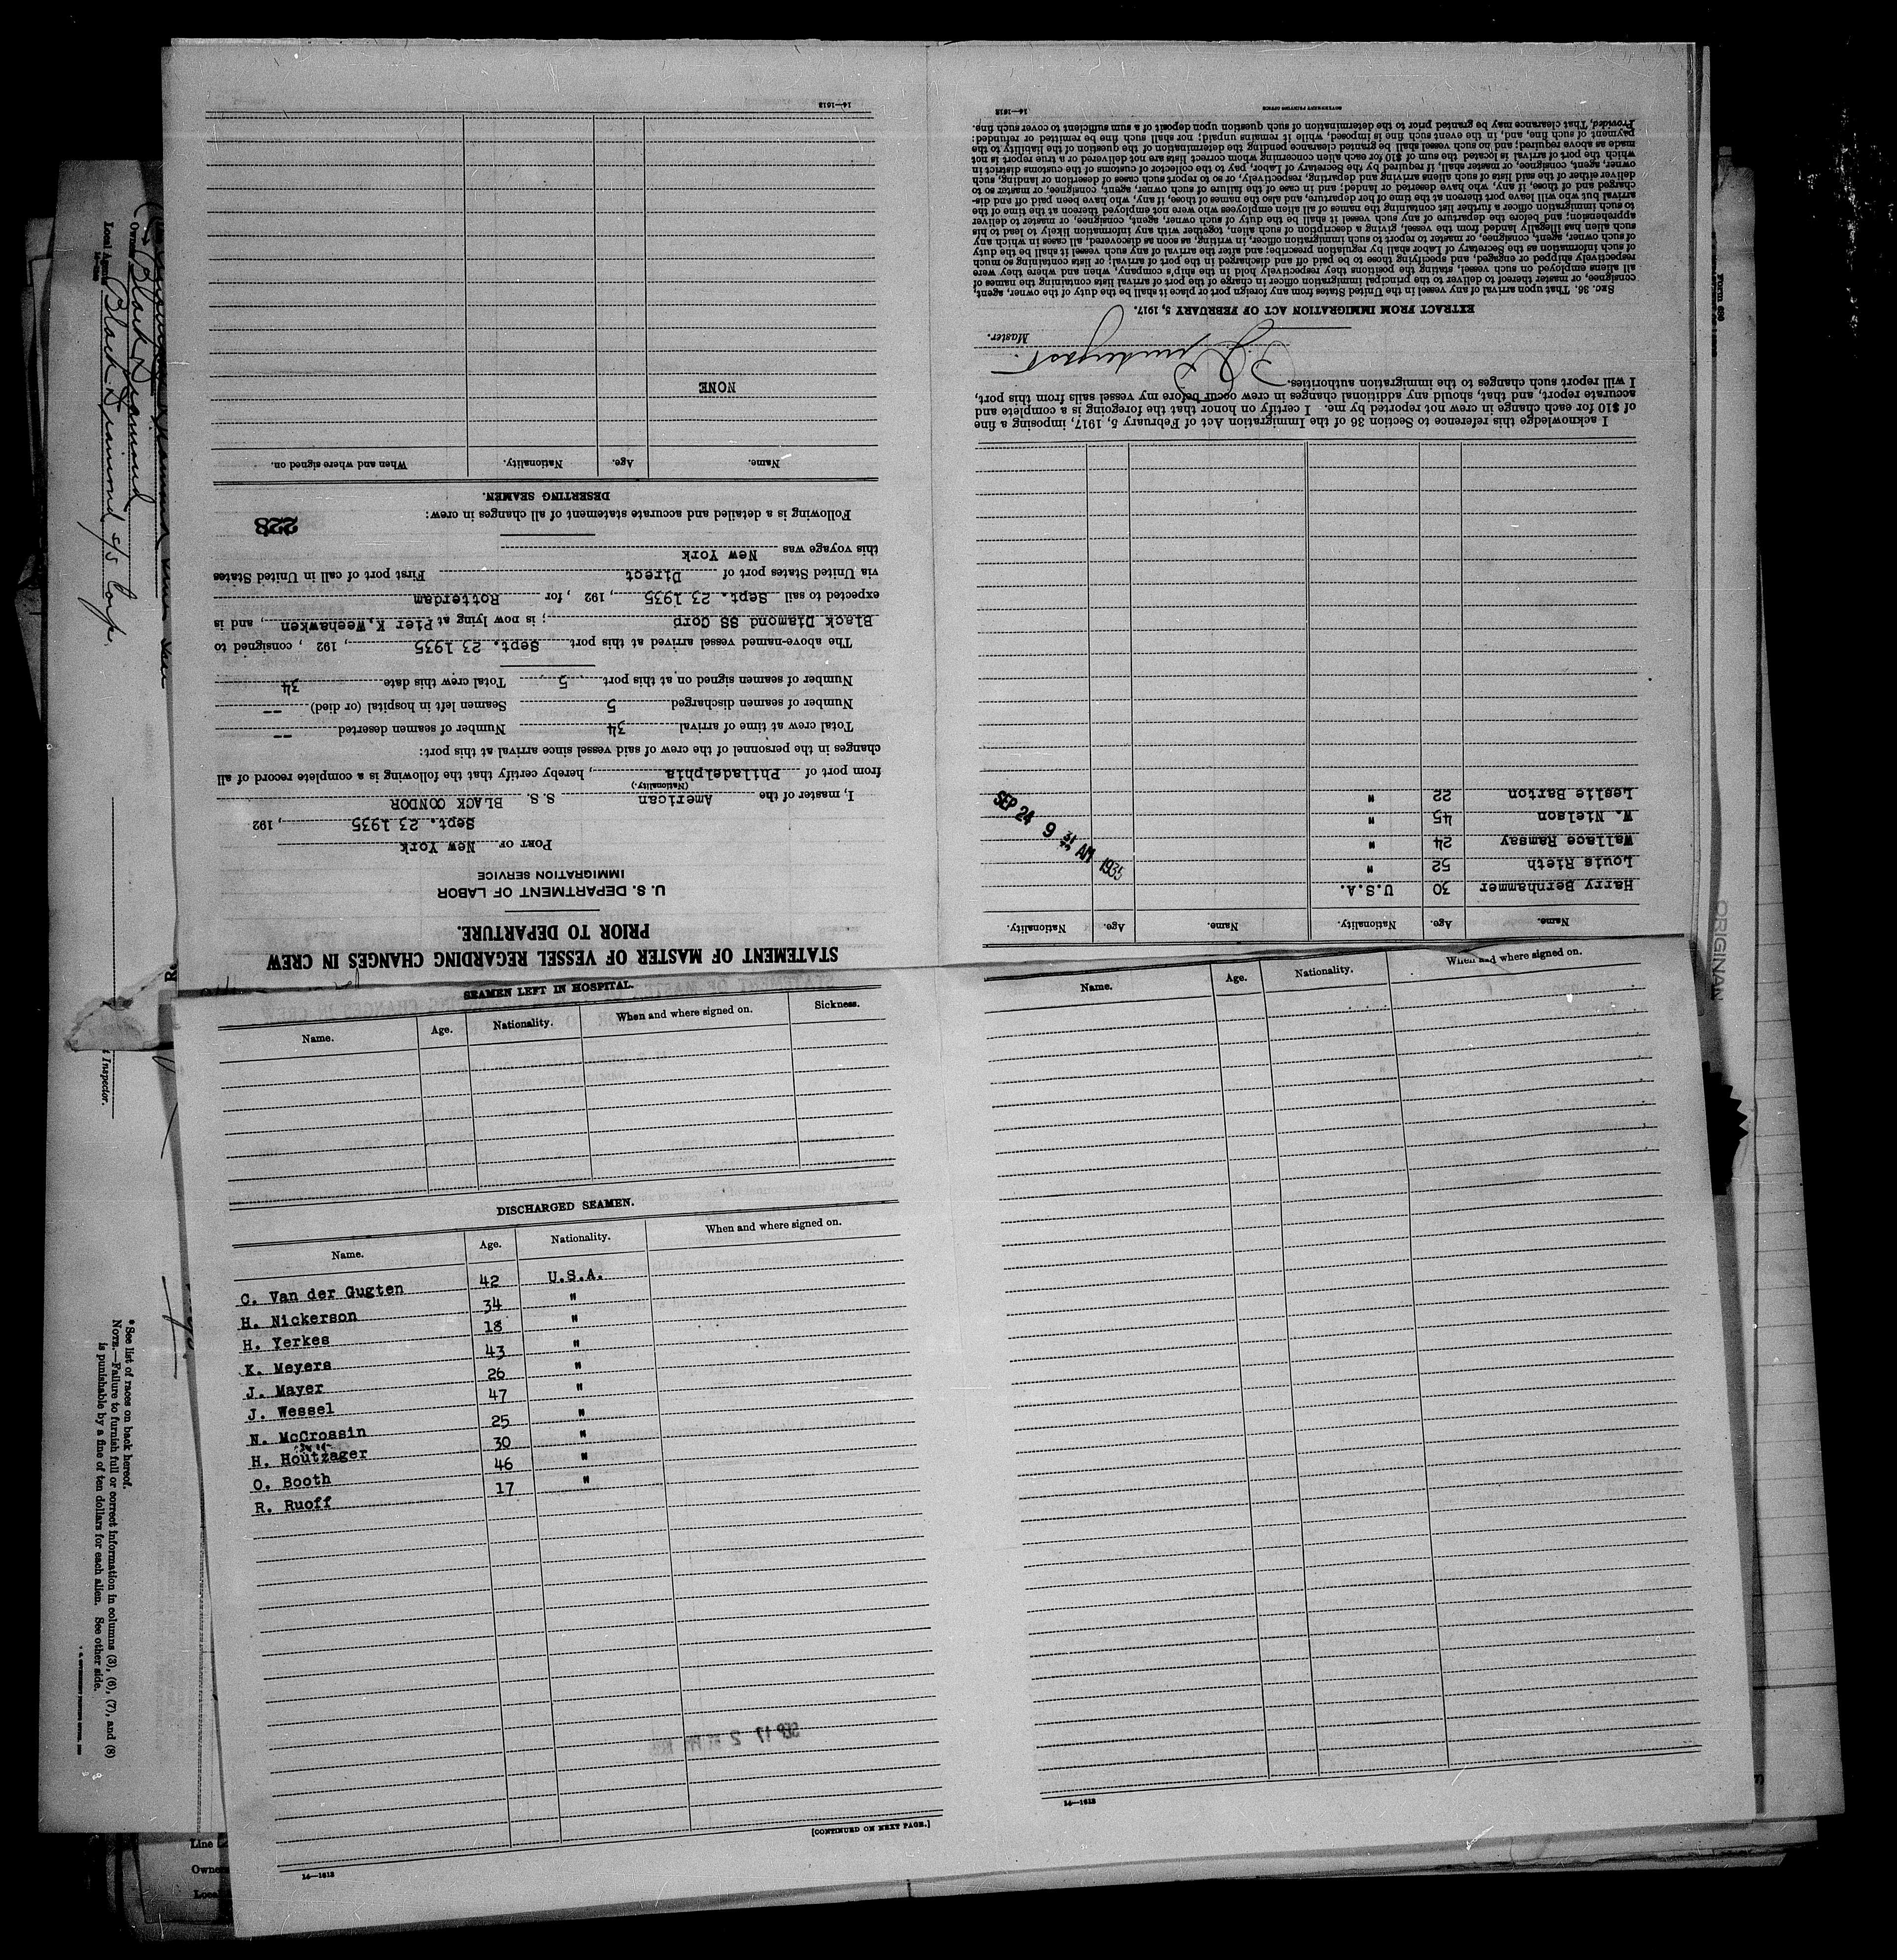 STATEMENT OF MASTER OF VESSEL REGARDING CHANGES IN CREW
PRIOR TO DEPARTURE.
U. S. DEPARTMENT OF LABOR
IMMIGRATION SERVICE
PORT OF New York
Sept. 23 1935, 192
I, master of the American S. S. BLACK CONDOR
(Nationality.)
from port of Philadelphia, hereby certify that the following is a complete record of all
changes in the personnel of the crew of said vessel since arrival at this port:
Total crew at time of arrival 34 Number of seamen deserted --
Number of seamen discharged 5 Seamen left in hospital (or died) --
Number of seamen signed on at this port 5 Total crew this date 34
The above-named vessel arrived at this port Sept. 23 1935, 192 , consigned to
Black Diamond SS Corp; is now lying at Pier K, Weehawken, and is
expected to sail Sept. 23 1935, 192 , for Rotterdam
via United States port of Direct First port of call in United States
this voyage was New York
Following is a detailed and accurate statement of all changes in crew:
228
DESERTING SEAMEN.
Name. Age. Nationality. When and where signed on.
NONE
14—1618
Name. Age. Nationality. Name. Age. Nationality.
Harry Bernhammer 30 U.S.A.
Louis Rieth 52 "
Wallace Ramsay 24 "
W. Nielson 45 "
Leslie Barton 22 "
SEP 24 9 31 AM 1935
I acknowledge this reference to Section 36 of the Immigration Act of February 5, 1917, imposing a fine
of $10 for each change in crew not reported by me. I certify on honor that the foregoing is a complete and
accurate report, and that, should any additional changes in crew occur before my vessel sails from this port,
I will report such changes to the immigration authorities.
Master.
EXTRACT FROM IMMIGRATION ACT OF FEBRUARY 5, 1917.
SEC. 36. That upon arrival of any vessel in the United States from any foreign port or place it shall be the duty of the owner, agent,
consignee, or master thereof to deliver to the principal immigration officer in charge of the port of arrival lists containing the names of
all aliens employed on such vessel, stating the positions they respectively hold in the ship's company, when and where they were
respectively shipped or engaged, and specifying those to be paid off and discharged in the port of arrival; or lists containing so much
of such information as the Secretary of Labor shall by regulation prescribe; and after the arrival of any such vessel it shall be the duty
of such owner, agent, consignee, or master to report to such immigration officer, in writing, as soon as discovered, all cases in which any
such alien has illegally landed from the vessel, giving a description of such alien, together with any information likely to lead to his
apprehension; and before the departure of any such vessel it shall be the duty of such owner, agent, consignee, or master to deliver
to such immigration officer a further list containing the names of all alien employees who were not employed thereon at the time of the
arrival but who will leave port thereon at the time of her departure, and also the names of those, if any, who have been paid off and dis-
charged and of those, if any, who have deserted or landed; and in case of the failure of such owner, agent, consignee, or master so to
deliver either of the said lists of such aliens arriving and departing, respectively, or so to report such cases of desertion or landing, such
owner, agent, consignee, or master shall, if required by the Secretary of Labor, pay to the collector of customs of the customs district in
which the port of arrival is located the sum of $10 for each alien concerning whom correct lists are not delivered or a true report is not
made as above required; and no such vessel shall be granted clearance pending the determination of the question of the liability to the
payment of such fine, and, in the event such fine is imposed, while it remains unpaid; nor shall such fine be remitted or refunded:
Provided, That clearance may be granted prior to the determination of such question upon deposit of a sum sufficient to cover such fine.
GOVERNMENT PRINTING OFFICE 14—1618
SEAMEN LEFT IN HOSPITAL.
Name. Age. Nationality. When and where signed on. Sickness.
DISCHARGED SEAMEN.
Name. Age. Nationality. When and where signed on.
C. Van der Gugten 42 U.S.A.
H. Nickerson 34 "
H. Yerkes 18 "
K. Meyers 43 "
J. Mayer 26 "
J. Wessel 47 "
N. McCrossin 25 "
H. Houtzager 30 "
O. Booth 46 "
R. Ruoff 17 "
SEP 17 2
[CONTINUED ON NEXT PAGE.]
14—1618
Name. Age. Nationality. When and where signed on.
14—1618
Owner Black Diamond
Local Agent Black Diamond S/S Corp.
t Inspector.
* See list of races on back hereof.
NOTE.—Failure to furnish full or correct information in columns (3), (6), (7), and (8)
is punishable by a fine of ten dollars for each alien. See other side.
Form 689
ORIGINAL
Line
Owner
Local